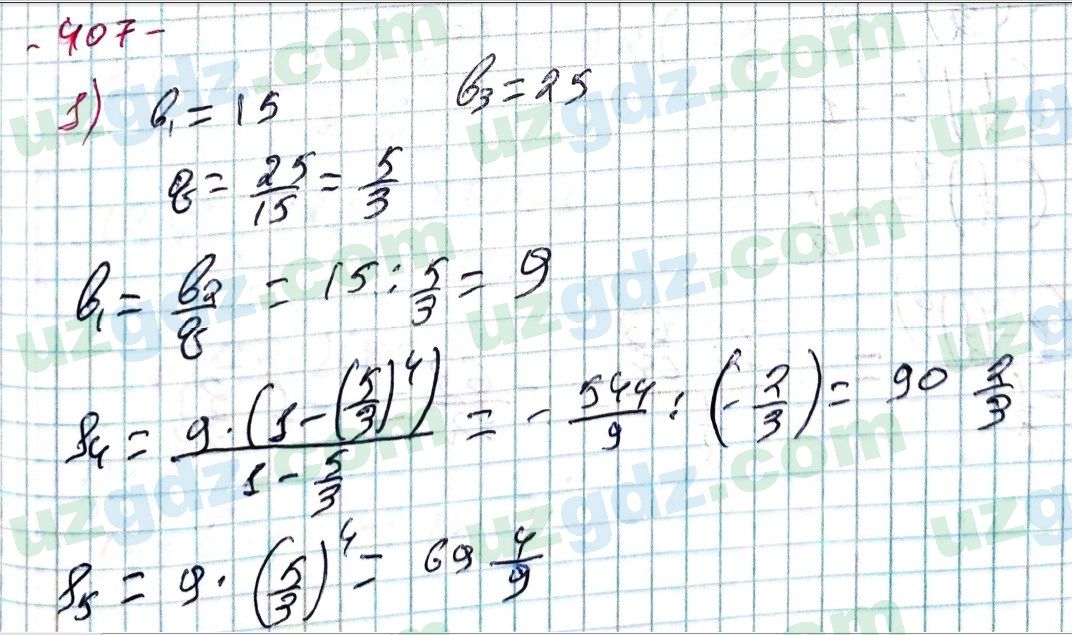 - 407 -
1) b₁ = 15 b₃ = 25
q = 25/15 = 5/3
b₁ = b₂/q = 15 : 5/3 = 9
S₄ = 9 · (1 - (5/3)⁴) / 1 - 5/3 = - 544/9 : (- 2/3) = 90 2/3
S₅ = 9 · (5/3)⁴ = 69 4/9
uzgdz.com